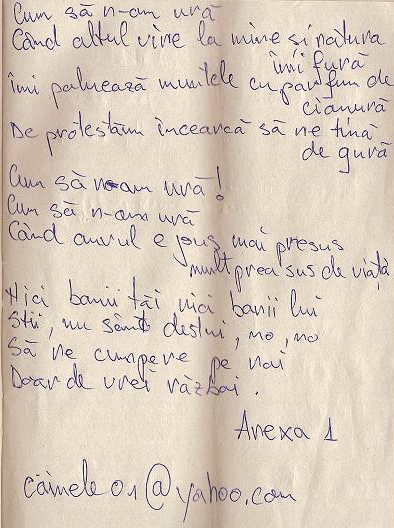 Cum să n-am ură
Când altul vine la mine și natura
îmi fură
Îmi paluează muntele cu parfum de
cianură
De protestăm încearcă să ne țină
de gură
Cum să n-am ură!
Cum să n-am ură
Când aurul e pus mai presus
mult prea sus de viață
Nici banii tăi nici banii lui
Stii, nu sânt destui, no, no
Să ne cumpere pe noi
Doar de vrei război.
Anexa 1
câinele01@yahoo.com